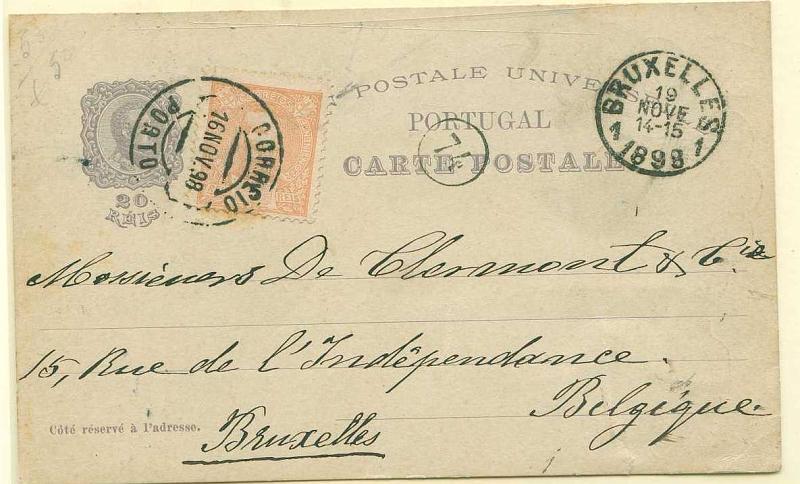 POSTALE UNIVERSE
PORTUGAL
CARTE POSTALE
20
REIS
CORREIO
16 NOV. 98
PORTO
REIS
BRUXELLES
19
NOVE
14-15
1 1898 1
Messieurs De Clermont & Cie
15, Rue de l'Indépendance.
Belgique.
Bruxelles
Côté réservé à l'adresse.